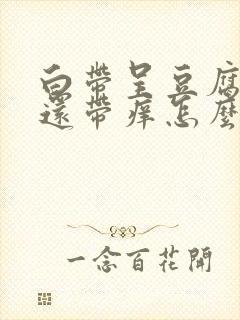 白帶呈豆腐
還帶痒怎麼
一念百花開